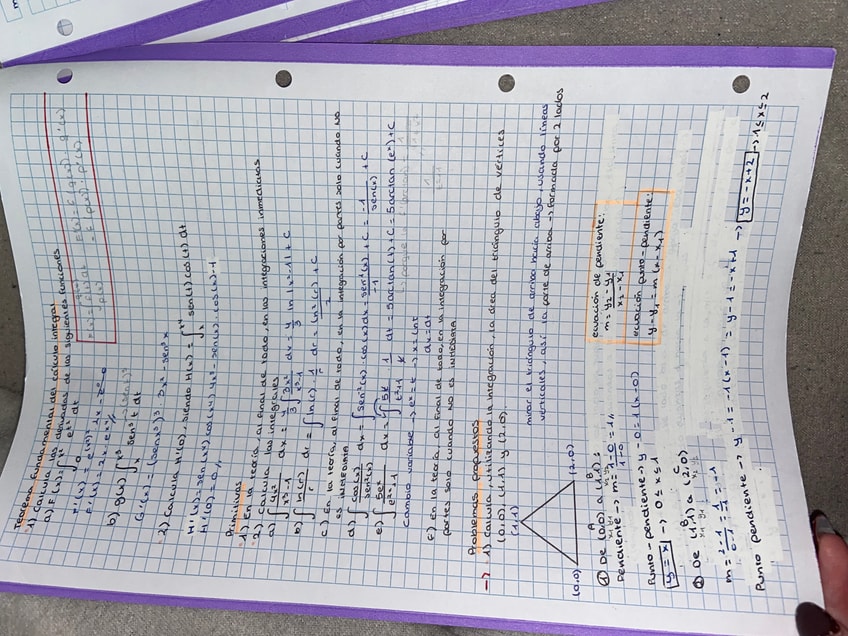 Teorema fundamental del cálculo integral
1) Calcula las derivadas de las siguientes funciones
a) F(x) = ∫₀^x² e^t² dt
F'(x) = 2x · e^x⁴
b) g(x) ∫ₓ^x³ sen³ t dt
G'(x) = (sen x³)³ · 3x² - sen³x
2) Calcula H'(0), siendo H(x) = ∫ₓ^x⁴ sen(t) cos(t) dt
H'(x) = sen(x⁴) cos(x⁴) 4x³ - sen(x) · cos(x) · 1
H'(0) = 0
Primitivas
1) En la teoría, al final de todo, en las integraciones inmediatas
2) Calcula las integrales
a) ∫ 4x²/x³-1 dx = 4/3 ∫ 3x²/x³-1 dx = 4/3 ln |x³-1| + C
b) ∫ ln(r)/r dr = ∫ ln(r) · 1/r dr = ln²(r)/2 + C
c) En la teoría, al final de todo, en la integración por partes solo cuando no
es inmediata
d) ∫ cos(x)/sen²(x) dx = ∫ sen⁻²(x) · cos(x) dx = sen⁻¹(x)/-1 + C = -1/sen(x) + C
e) ∫ 5eˣ/e²ˣ+1 dx = ∫ 5t/t²+1 · 1/t dt = 5 arctan(t) + C = 5 arctan(eˣ) + C
Cambio variable → eˣ = t → x = ln t
dx = dt
f) En la teoría, al final de todo, en la integración por
partes solo cuando no es inmediata
Problemas propuestos
→ 1) Calcula, utilizando la integración, la área del triángulo de vértices
(0,0), (1,1) y (2,0).
(1,1)
mirar el triángulo de arriba hacia abajo, usando líneas
verticales, así la parte de arriba → formada por 2 lados
(0,0)
(2,0)
① De (0,0) a (1,1):
A B
x₁ y₁ x₂ y₂
Pendiente → m = 1-0/1-0 = 1
Punto-pendiente → y - 0 = 1(x-0)
y = x → 0 ≤ x ≤ 1
ecuación de pendiente:
m = y₂ - y₁/x₂ - x₁
ecuación punto-pendiente:
y - y₁ = m (x - x₁)
② De (1,1) a (2,0)
B C
Punto pendiente → y - 1 = -1(x-1) = y - 1 = -x + 1 → y = -x + 2 → 1 ≤ x ≤ 2